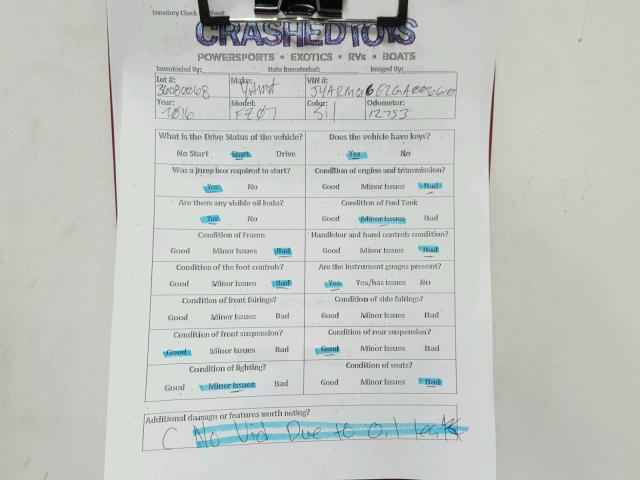 Inventory Check Sheet
CRASHEDTOYS
POWERSPORTS • EXOTICS • RVs • BOATS
Inventoried By: Date Inventoried: Imaged By:
Lot #: Make: VIN #:
36080068 YAMA
Year: Model: Color: Odometer:
2016 FZ07 Sil 12753
What is the Drive Status of the vehicle? Does the vehicle have keys?
No Start Start Drive Yes No
Was a jump box required to start? Condition of engine and transmission?
Yes No Good Minor Issues Bad
Are there any visible oil leaks? Condition of Fuel Tank
Yes No Good Minor Issues Bad
Condition of Frame Handlebar and hand controls condition?
Good Minor Issues Bad Good Minor Issues Bad
Condition of the foot controls? Are the instrument guages present?
Good Minor Issues Bad Yes Yes/has issues No
Condition of front fairings? Condition of side fairings?
Good Minor Issues Bad Good Minor Issues Bad
Condition of front suspension? Condition of rear suspension?
Good Minor Issues Bad Good Minor Issues Bad
Condition of lighting? Condition of seats?
Good Minor Issues Bad Good Minor Issues Bad
Additional damage or features worth noting?
C No Vid Due to oil leak